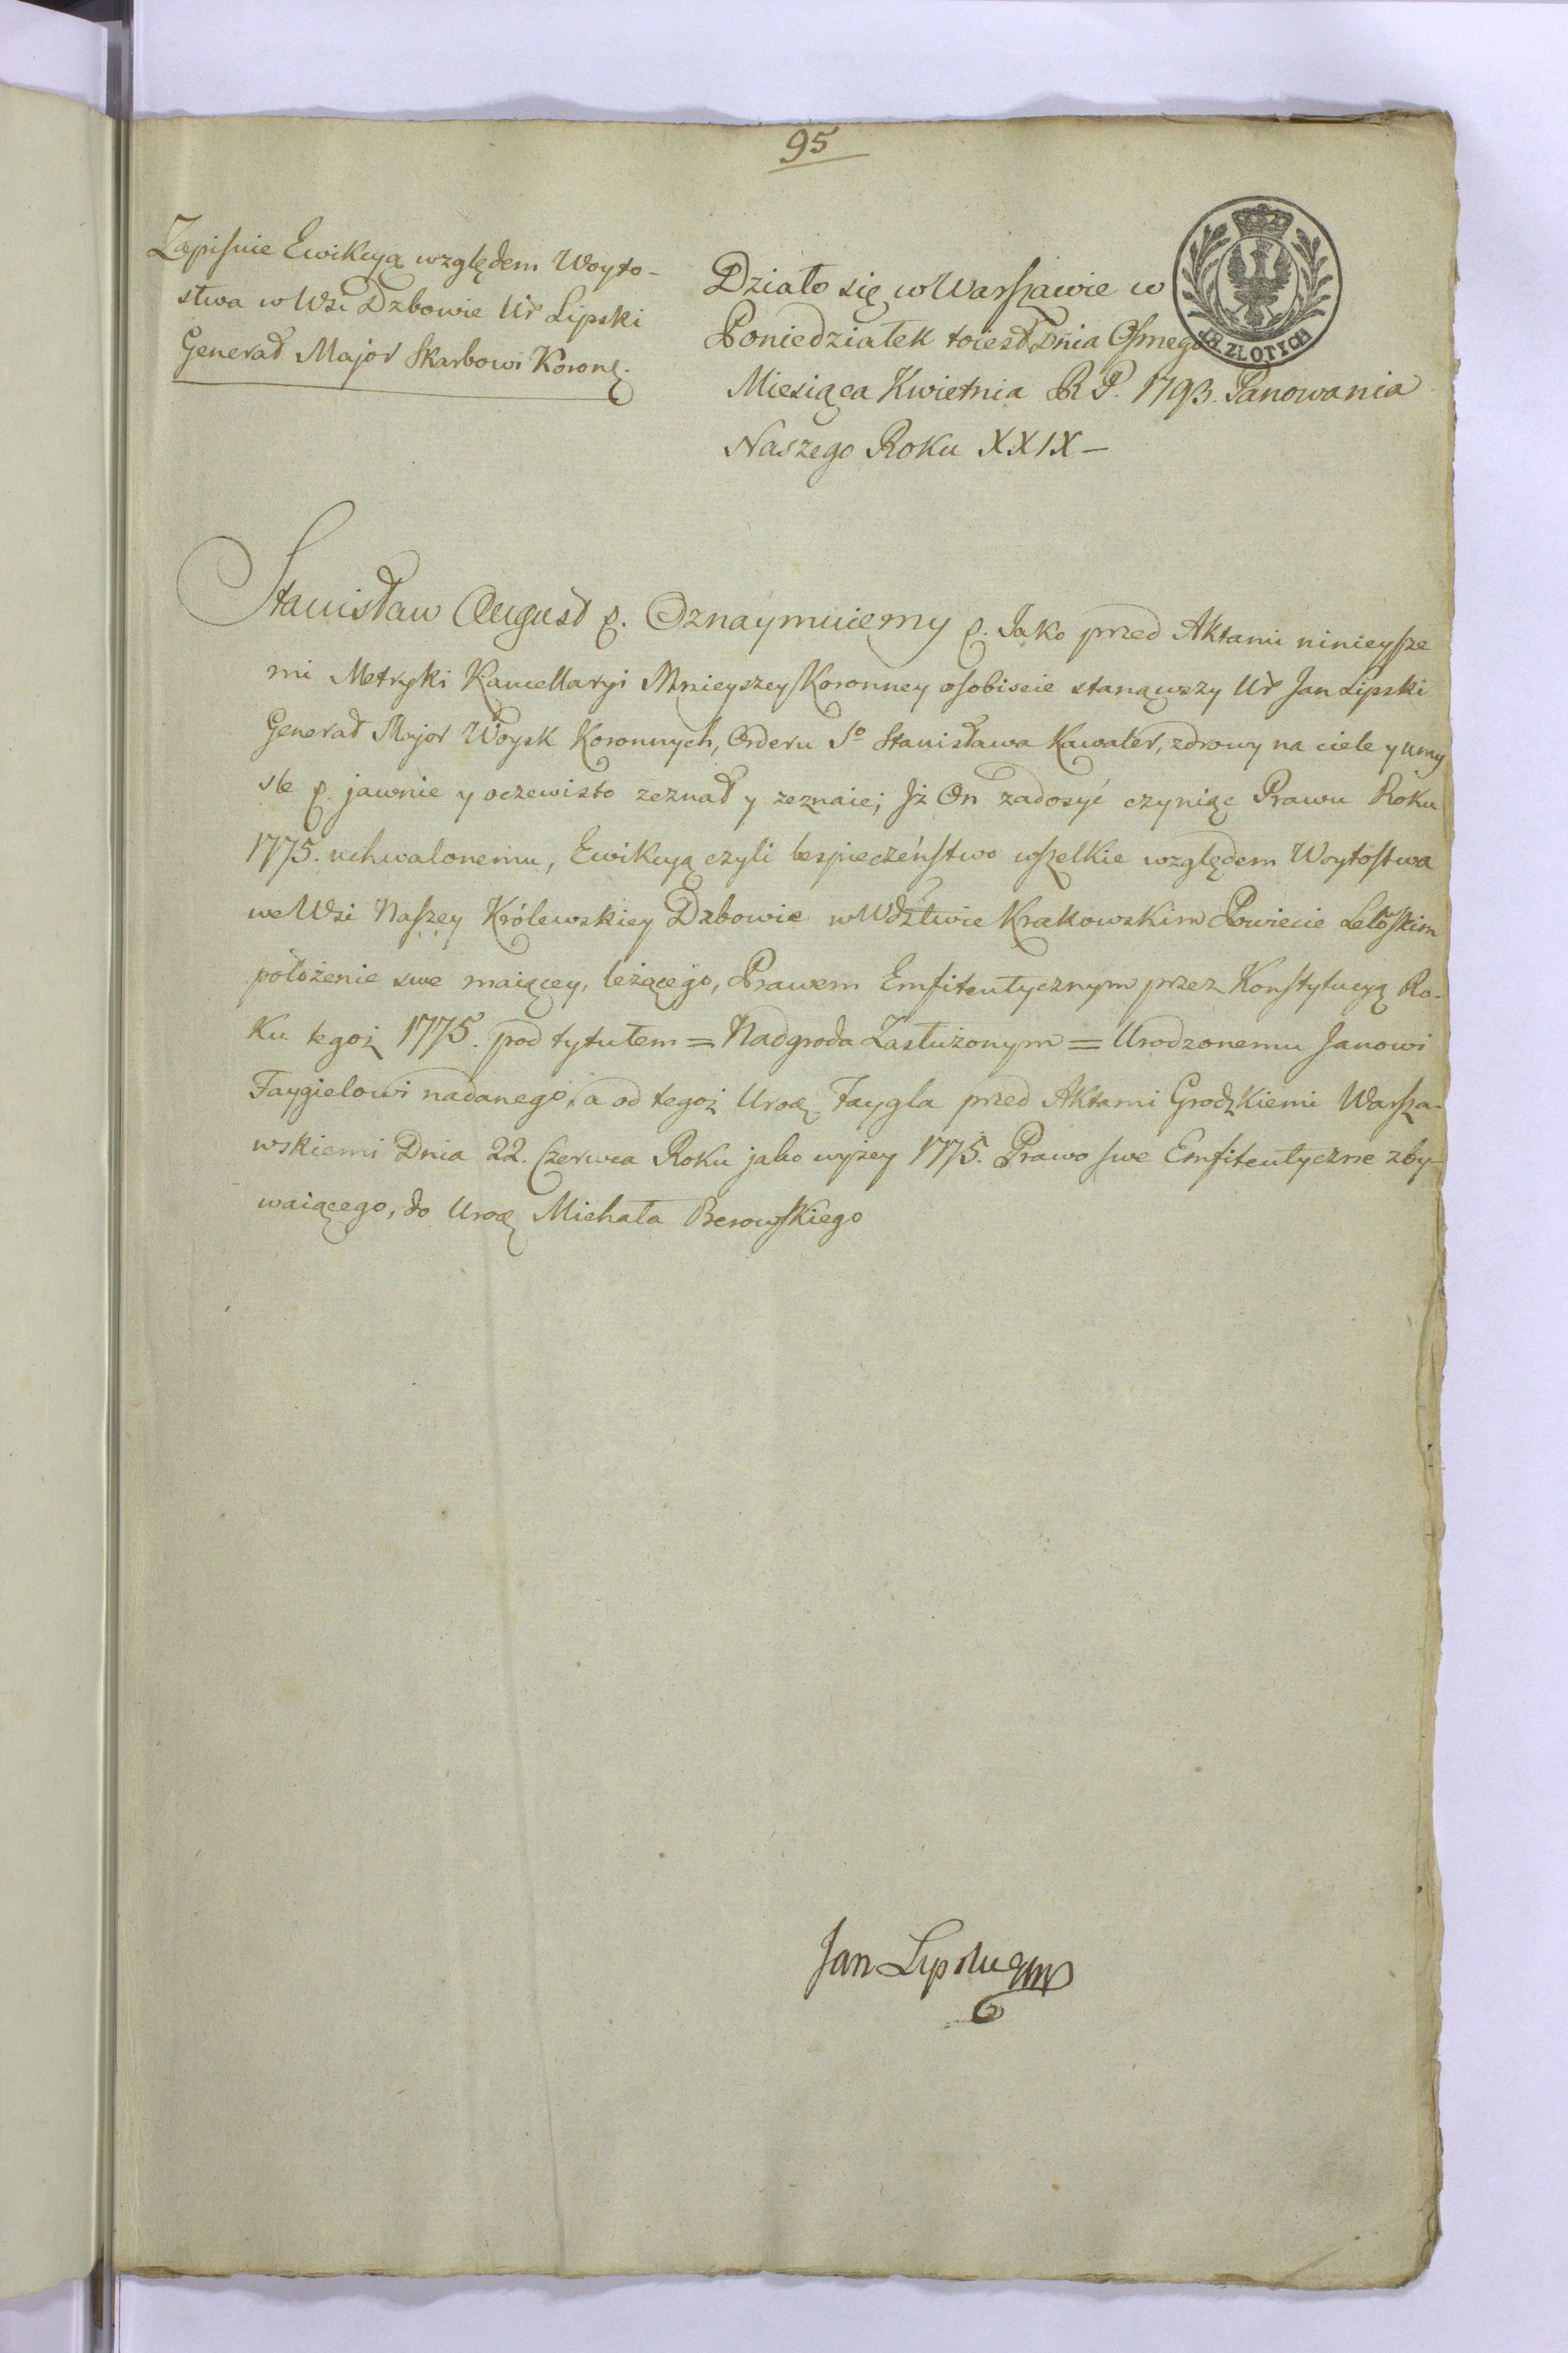 95
Zapisuie Ewikcyą względem Woyto-
stwa w Wsi Dzbowie Ur Lipski
Generał Major Skarbowi Koronę.
Działo się w Warszawie w
Poniedziałek toiest Dnia Osmego
Miesiąca Kwietnia R P. 1793. Panowania
Naszego Roku XXIX –
ZŁOTYCH
Stanisław August p. Oznaymuiemy p. Jako przed Aktami ninieysze
mi Metryki Kancellaryi Mnieyszey Koronney osobiscie stanąwszy Ur Jan Lipski
Generał Major Woysk Koronnych, Orderu So Stanisława Kawaler, zdrowy na ciele y umy
sle p. jawnie y oczewisto zeznał y zeznaie; Jż On zadosyć czyniąc Prawu Roku
1775. uchwalonemu, Ewikcyą czyli bespieczeństwo wszelkie względem Woytostwa
we Wsi Naszey Królewskiey Dzbowie w Wdztwie Krakowskim Powiecie Lelōskim
położenie swe maiącey, leżącego, Prawem Emfiteutycznym przez Konstytucyą Ro-
ku tegoż 1775. pod tytułem = Nadgroda Zasłużonym = Urodzonemu Janowi
Faygielowi nadanego, a od tegoż Urodz Faygla przed Aktami Grodzkiemi Warsza-
wskiemi Dnia 22. Czerwca Roku jako wyżey 1775. Prawo swe Emfiteutyczne zby-
waiącego, do Urodz Michała Berowskiego
Jan Lipski